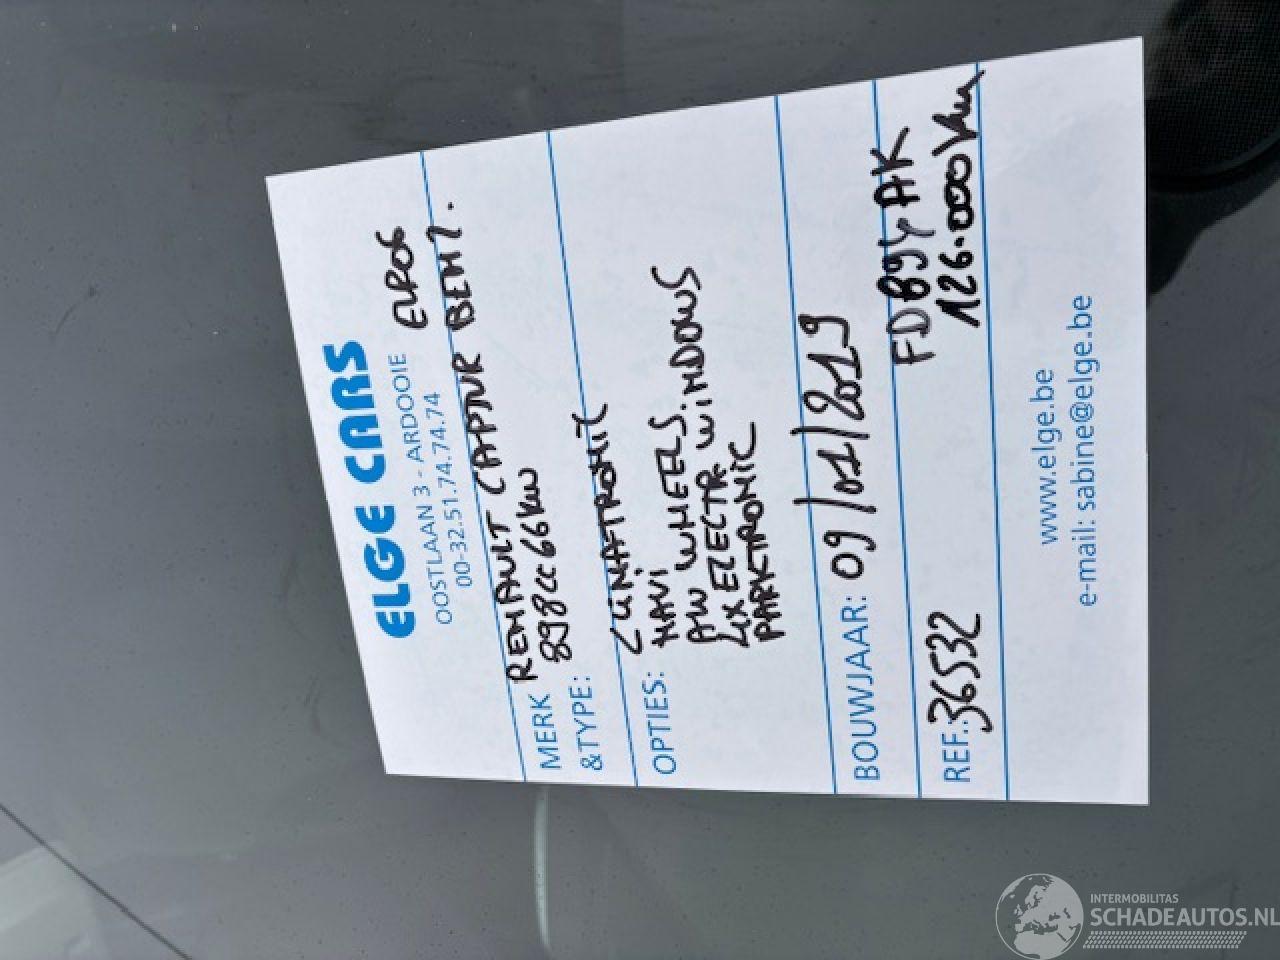 ELGE CARS
OOSTLAAN 3 - ARDOOIE EURO6
00-32.51.74.74.74
MERK RENAULT CAPTUR BENZ.
&TYPE: 898cc 66kw
OPTIES: CLIMATRONIC
NAVI
AW WHEELS.
4X ELECTR. WINDOWS
PARKTRONIC
BOUWJAAR: 09/01/2019
REF.: 36532
126.000km
www.elge.be
e-mail: sabine@elge.be
INTERMOBILITAS
SCHADEAUTOS.NL